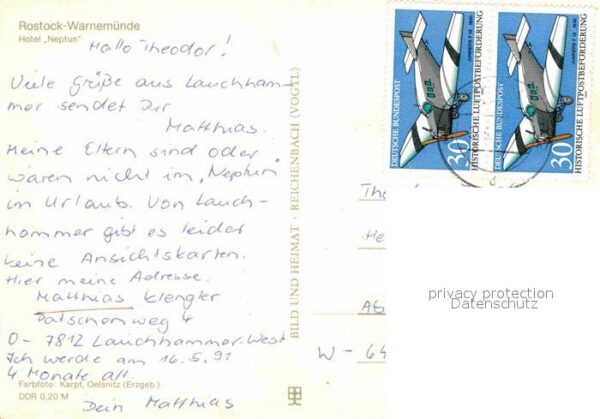 Rostock-Warnemünde
Hotel „Neptun"
Hallo Theodor!
Viele Grüße aus Lauchham-
mer sendet Dir
Matthias.
Meine Eltern sind oder
waren nicht im „Neptun"
im Urlaub. Von Lauch-
hammer gibt es leider
keine Ansichtskarten.
Hier meine Adresse.
Matthias Klengler
Patschenweg 4
O - 7812 Lauchhammer-West
Ich werde am 16.5.91
4 Monate alt.
Dein Matthias
Farbfoto: Karpf, Oelsnitz (Erzgeb.)
DDR 0,20 M
BILD UND HEIMAT · REICHENBACH (VOGTL)
DEUTSCHE BUNDESPOST
30
JUNKERS F 13 · 1930
HISTORISCHE LUFTPOSTBEFÖRDERUNG
DEUTSCHE BUNDESPOST
30
JUNKERS F 13 · 1930
HISTORISCHE LUFTPOSTBEFÖRDERUNG
The
He
Ab
W - 64
privacy protection
Datenschutz